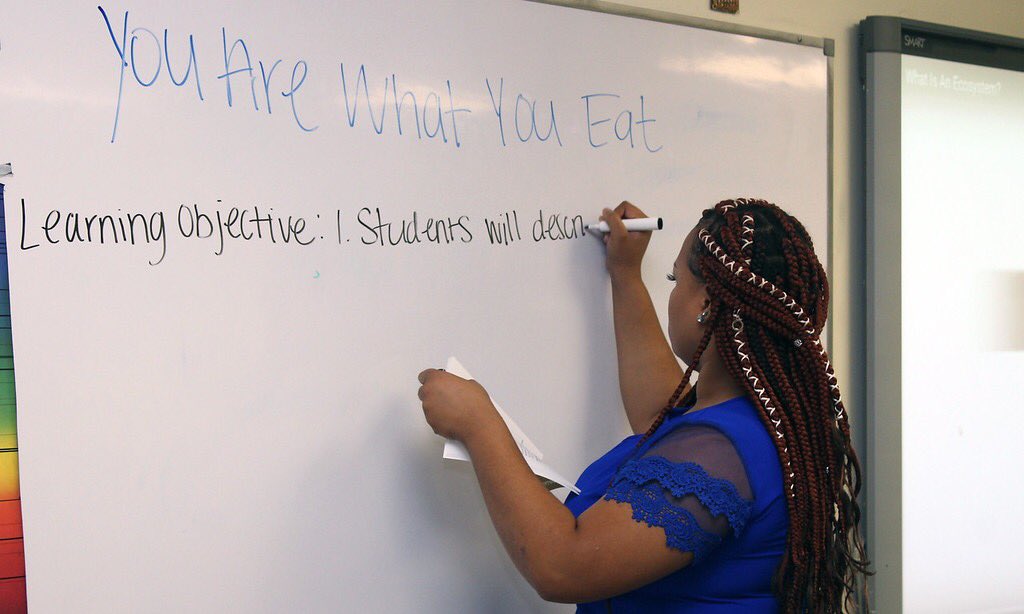 You Are What You Eat
Learning Objective: 1. Students will descri
SMART
What Is An Ecosystem?